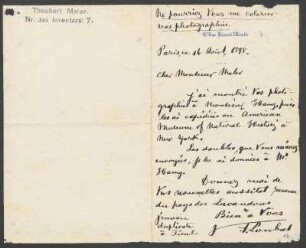 Theobert Maler.
Nr. des Inventars: 7.
Ne pourriez Vous me colorier
vos photographies.
Paris, ce 16 Août, 1898.
cher Monsieur Maler
J'ai montré Vos photo-
graphies à Monsieur
les ai expédiées au American
Museum of Natural History à
New York.
Les doubles, que Vous m'avez
envoyés, je les ai donnés à Mr
Donnez moi de
Vos nouvelles aussitôt
du pays des Lacandons
Bien à Vous
duplicate